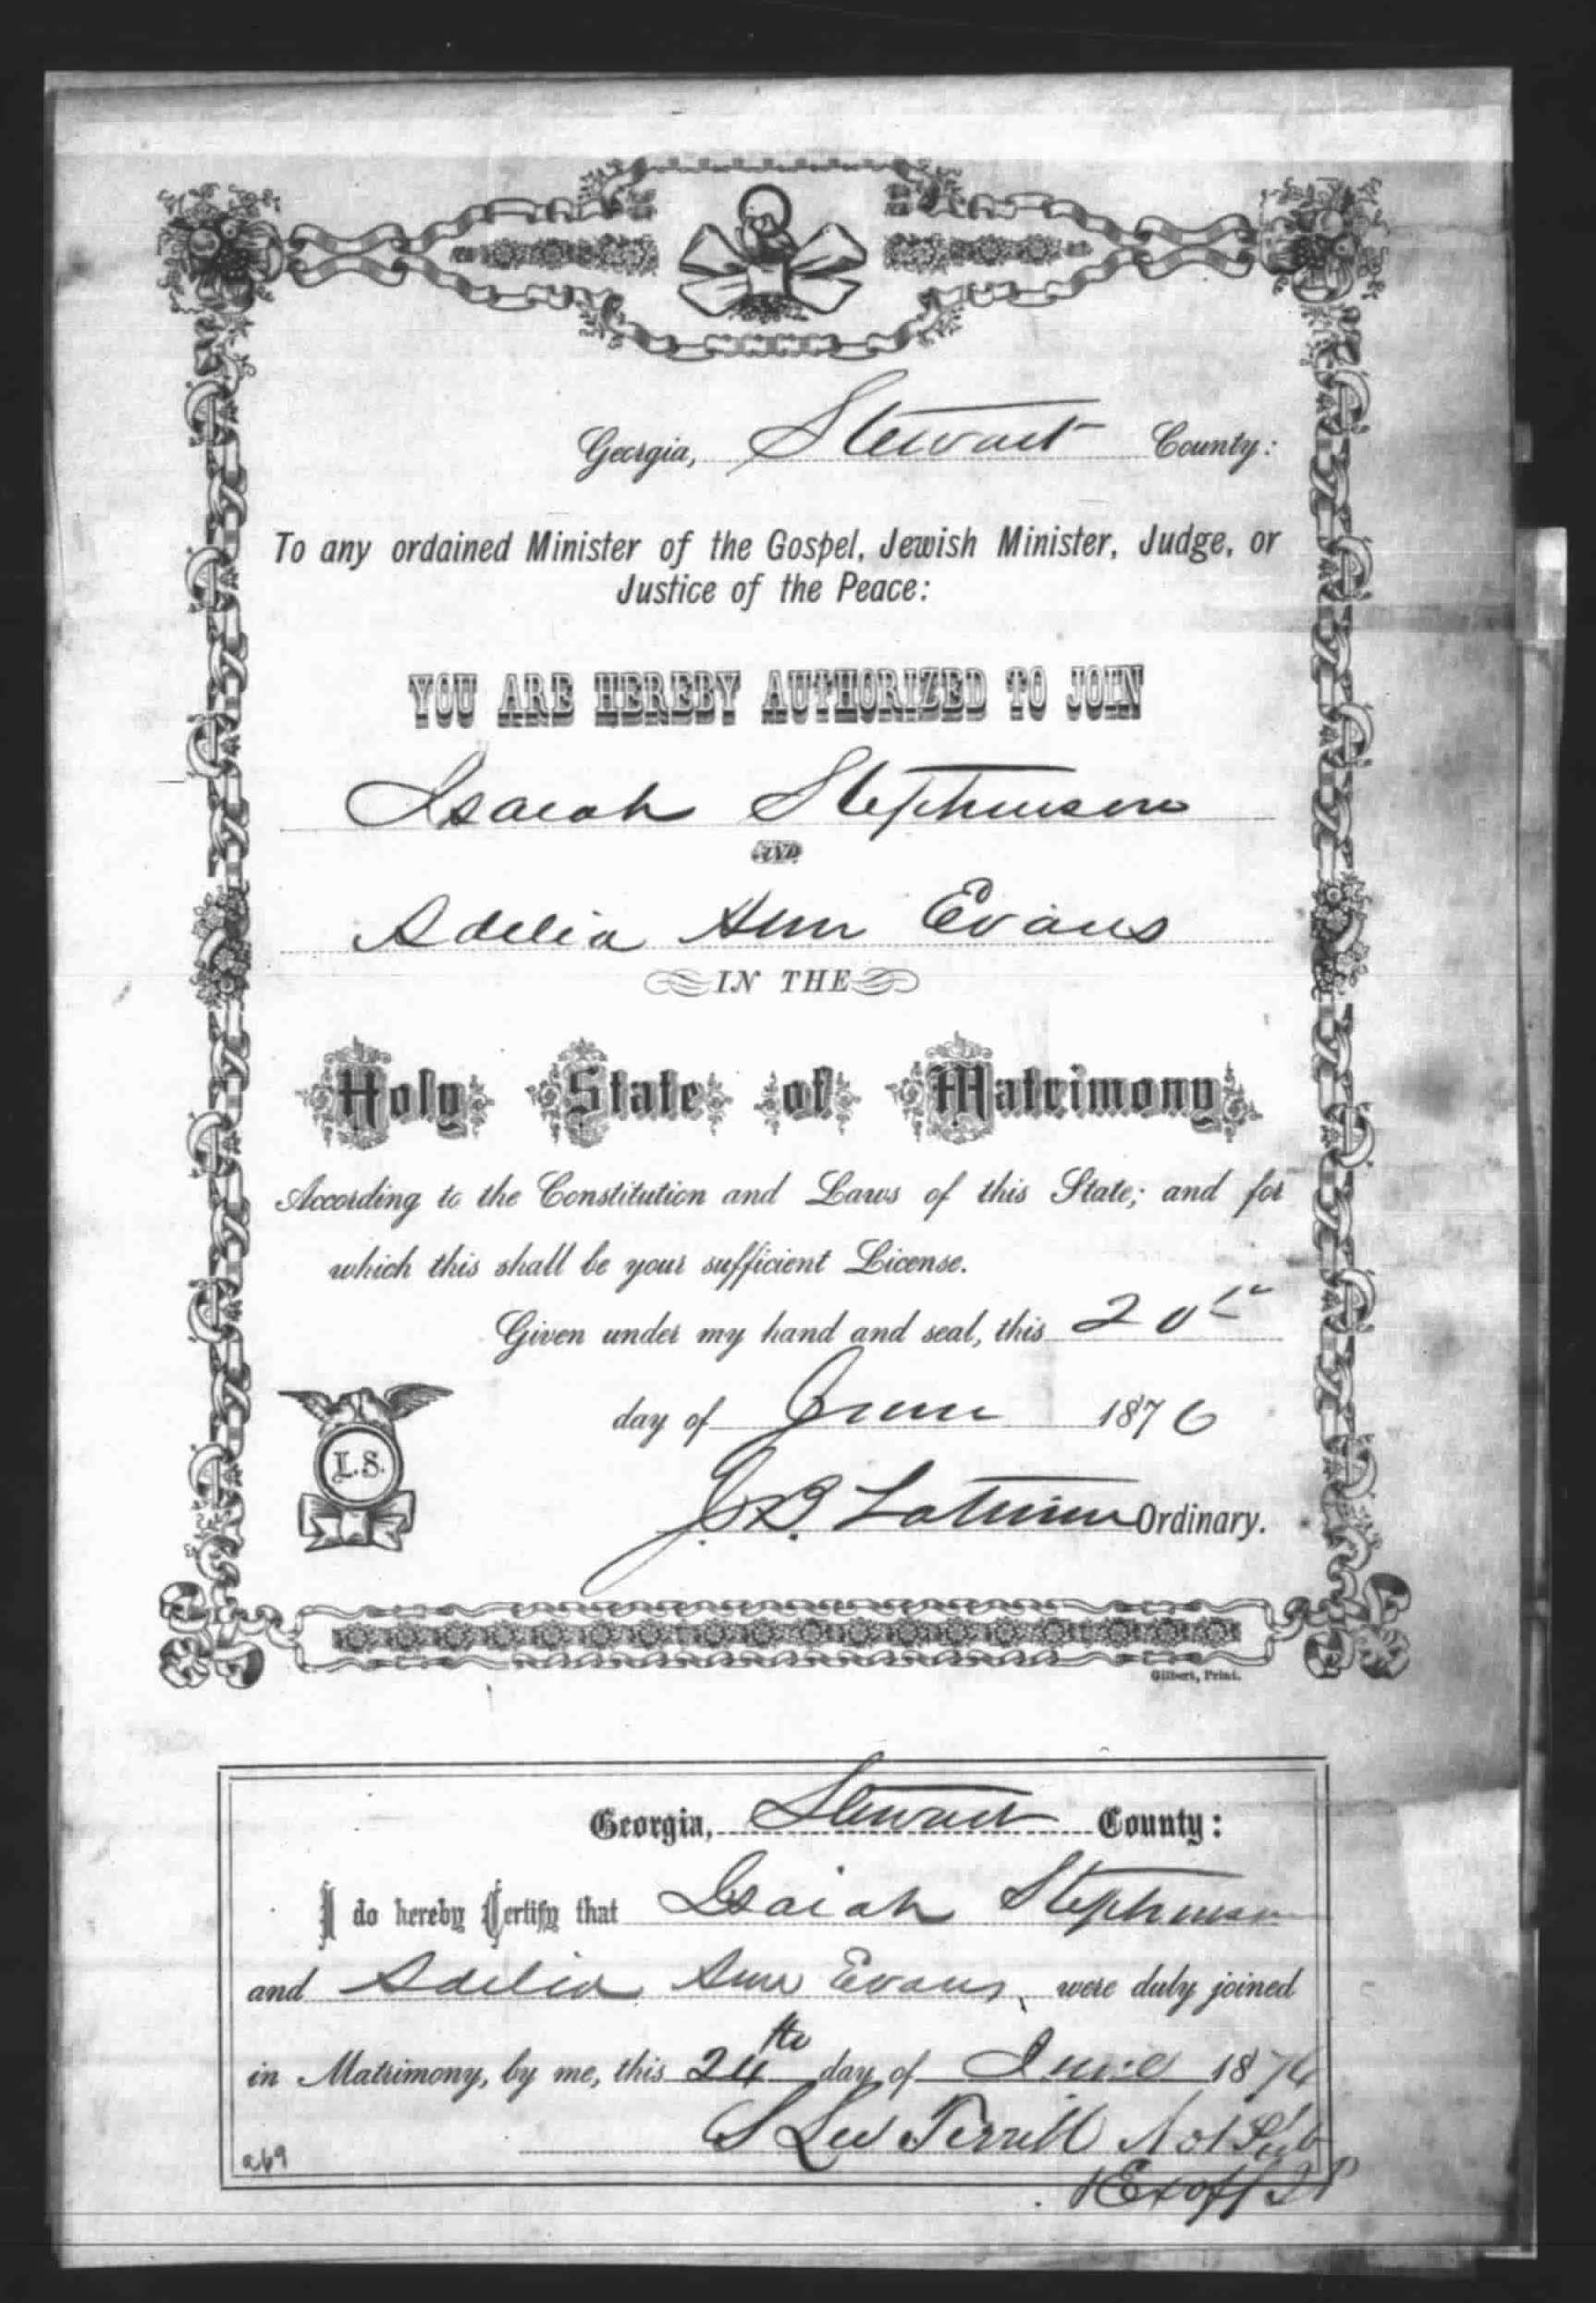 Georgia, Stewart County:
To any ordained Minister of the Gospel, Jewish Minister, Judge, or
Justice of the Peace:
YOU ARE HEREBY AUTHORIZED TO JOIN
Isaiah Stephenson
AND
Adelia Ann Evans
IN THE
Holy State of Matrimony
According to the Constitution and Laws of this State; and for
which this shall be your sufficient License.
Given under my hand and seal, this 20th
day of June 1876
L.S.
J. B. Latimer Ordinary.
Gilbert, Print.
Georgia, Stewart County:
I do hereby Certify that Isaiah Stephenson
and Adelia Ann Evans, were duly joined
in Matrimony, by me, this 24th day of June 1876
S Lee Terrill Not Pub
269
&Exoff JP